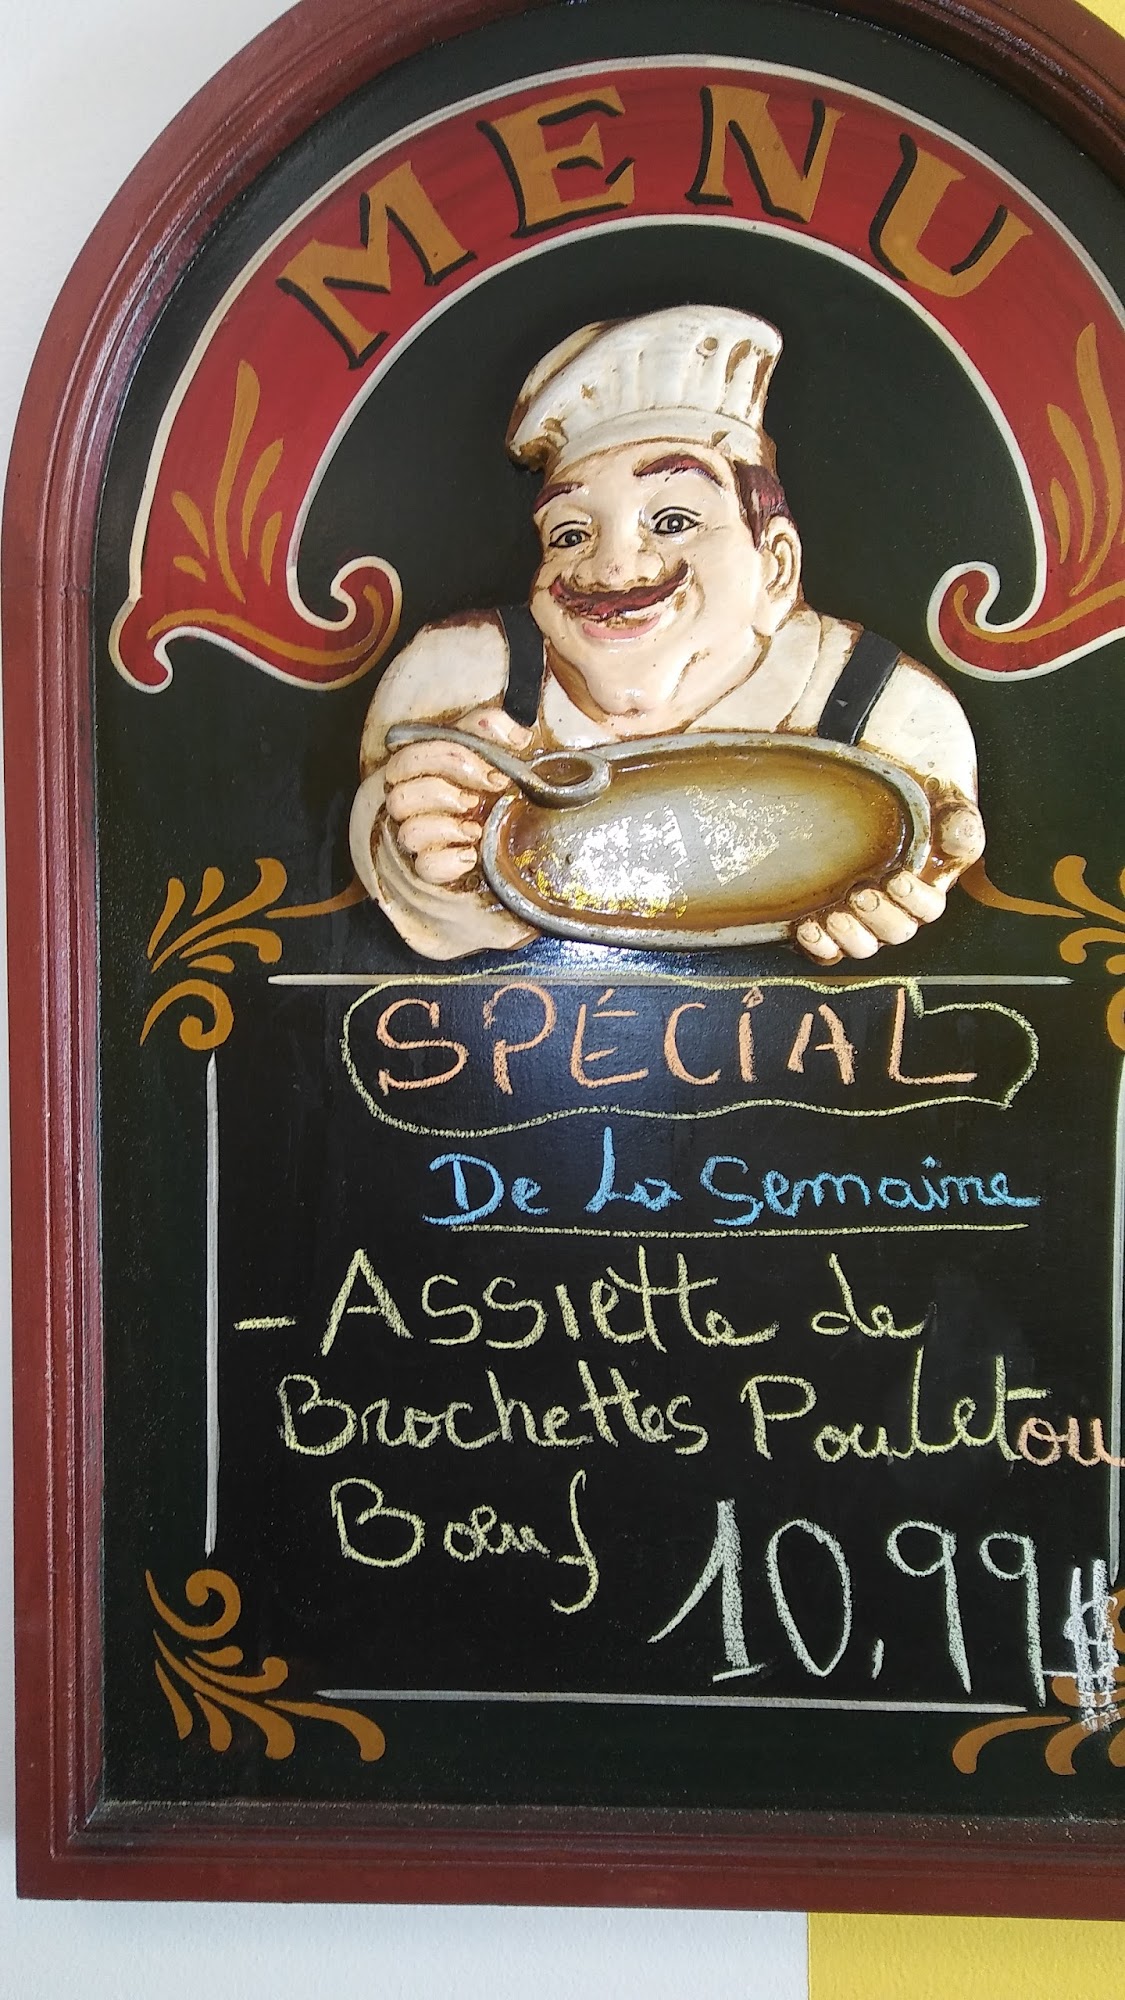 MENU
SPÉCIAL
De La Semaine
- Assiette de
Brochettes Poulet ou
Bœuf
10,99$